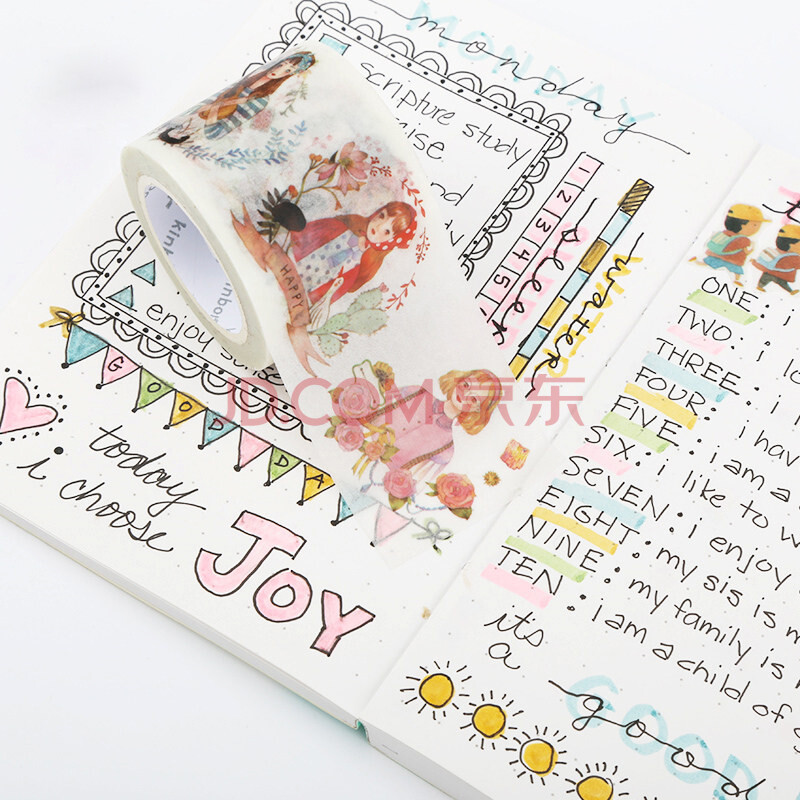 MONDAY
monday
scripture study
enjoy
1 2 3 4 5
sleep
water
HAPPY
JD.COM 京东
GOOD DA
today
i choose
JOY
ONE: i
TWO: i
THREE: i
FOUR: i hav
FIVE: i am a
SIX: i like to w
SEVEN: i enjoy
EIGHT: my sis is m
NINE: my family is
TEN: i am a child of
it's
a
GOOD
good